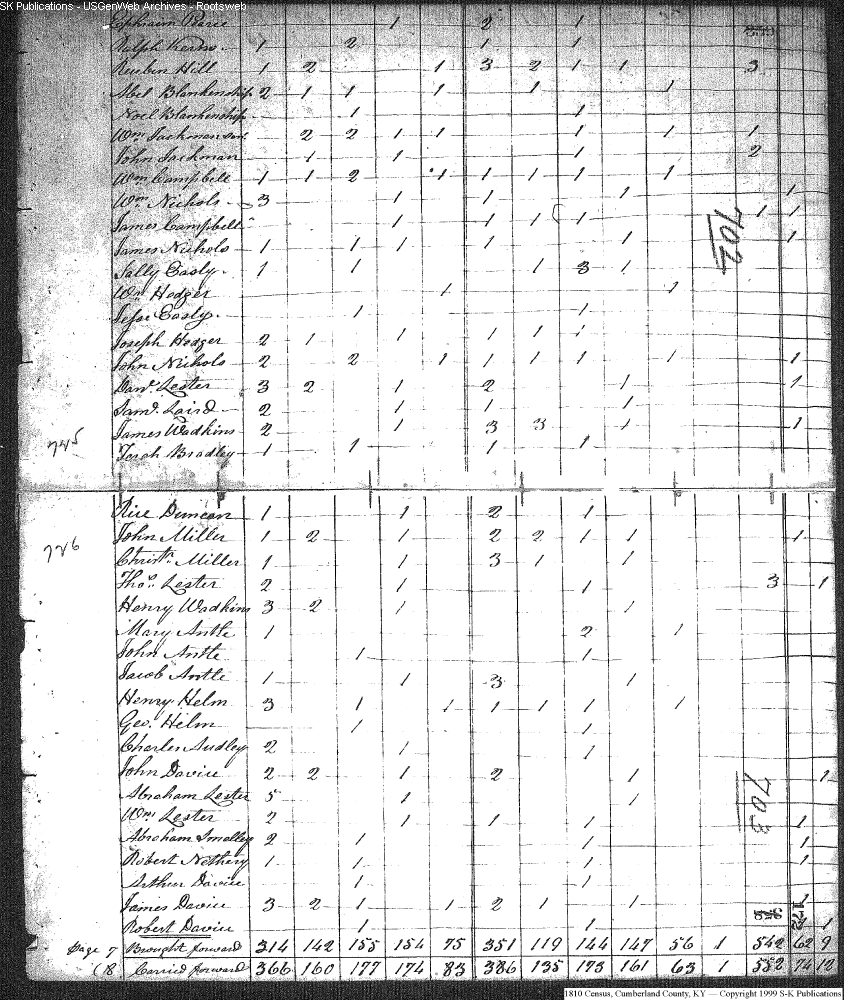 SK Publications - USGenWeb Archives - Rootsweb
Ephraim 1 2 1
Ralph Kerns 1 2 1 1
Reuben Hill 1 2 1 3 2 1 1 3
Abel Blankenship 2 1 1 1 1 1
Noel Blankenship 1 1
Wm Jackman 2 2 1 1 1 1 1
John Jackman 1 1 1 2
Wm Campbell 1 1 2 1 1 1 1 1
Wm Nichols 3 1 1 1 1
James Campbell 1 1 1 1 1 1
James Nichols 1 1 1 1 1 1
Sally Easly 1 1 1 3 1
Wm Hodger 1 1
Jesse Easly 1 1
Joseph Hodger 2 1 1 1 1 1
John Nichols 2 2 1 1 1 1 1 1
Danl Lester 3 2 1 2 1 1
Saml Laird 2 1 1 1
James Wadkins 2 1 3 3 1 1
Bradley 1 1 1 1
702
745
Rice Duncan 1 1 2 1
John Miller 1 2 1 2 2 1 1 1
Christr Miller 1 1 3 1 1
Thos Lester 2 1 1 3 1
Henry Wadkins 3 2 1 1
Mary Antle 1 2 1
John Antle 1 1
Jacob Antle 1 1 3 1
Henry Helm 3 1 1 1 1 1 1
Geo. Helm 1 1
Charles Sudley 2 1 1
John Davice 2 2 1 2 1 1
Abraham Lester 5 1 1
Wm Lester 2 1 1 1 1
Abraham Smalley 2 1 1 1
Robert Nethery 1 1 1 1
Arthur Davice 1 1
James Davice 3 2 1 1 2 1 1 1
Robert Davice 1 1 1
726
703
172
Page 7 Brought forward 314 142 155 154 75 351 119 144 147 56 1 542 62 9
(8 Carried forward 366 160 177 174 83 386 135 173 161 63 1 552 74 12
1810 Census, Cumberland County, KY — Copyright 1999 S-K Publications